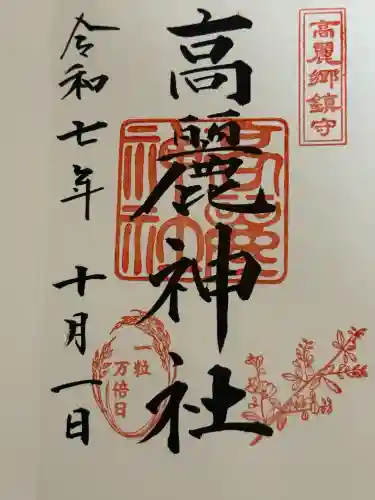 高麗郷鎮守
高麗神社
高麗神社
令和七年 十月一日
一粒
万倍日